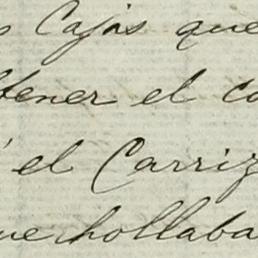 Cajas que
tener el co
el Carriz
ue hollaba